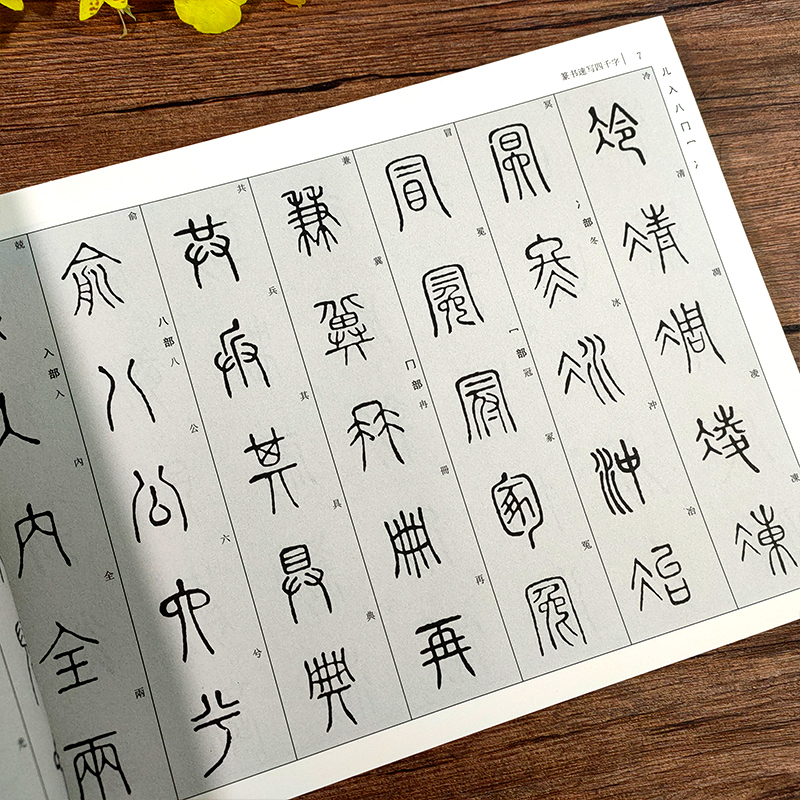 篆书速写四千字 7
儿入八冂冖冫
冷 凊 凋 凌 凍
冥 冫部 冬 冰 冲 冶
冒 冕 冖部 冠 冢 冤
兼 冀 冂部 冉 冊 再
共 兵 其 具 典
俞 八部 八 公 六 兮
兢 入部 入 內 全 兩